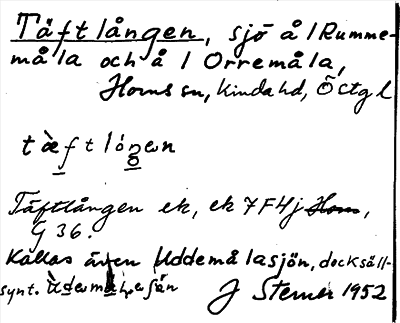 Täftlången, sjö å 1 Rumme-
måla och å 1 Orremåla,
Horns sn, Kinda hd, Östgl
Täftlången ek, ek 7F4j Horn,
G 36.
Kallas även Uddemålasjön, dock säll-
synt.
J Sterner 1952